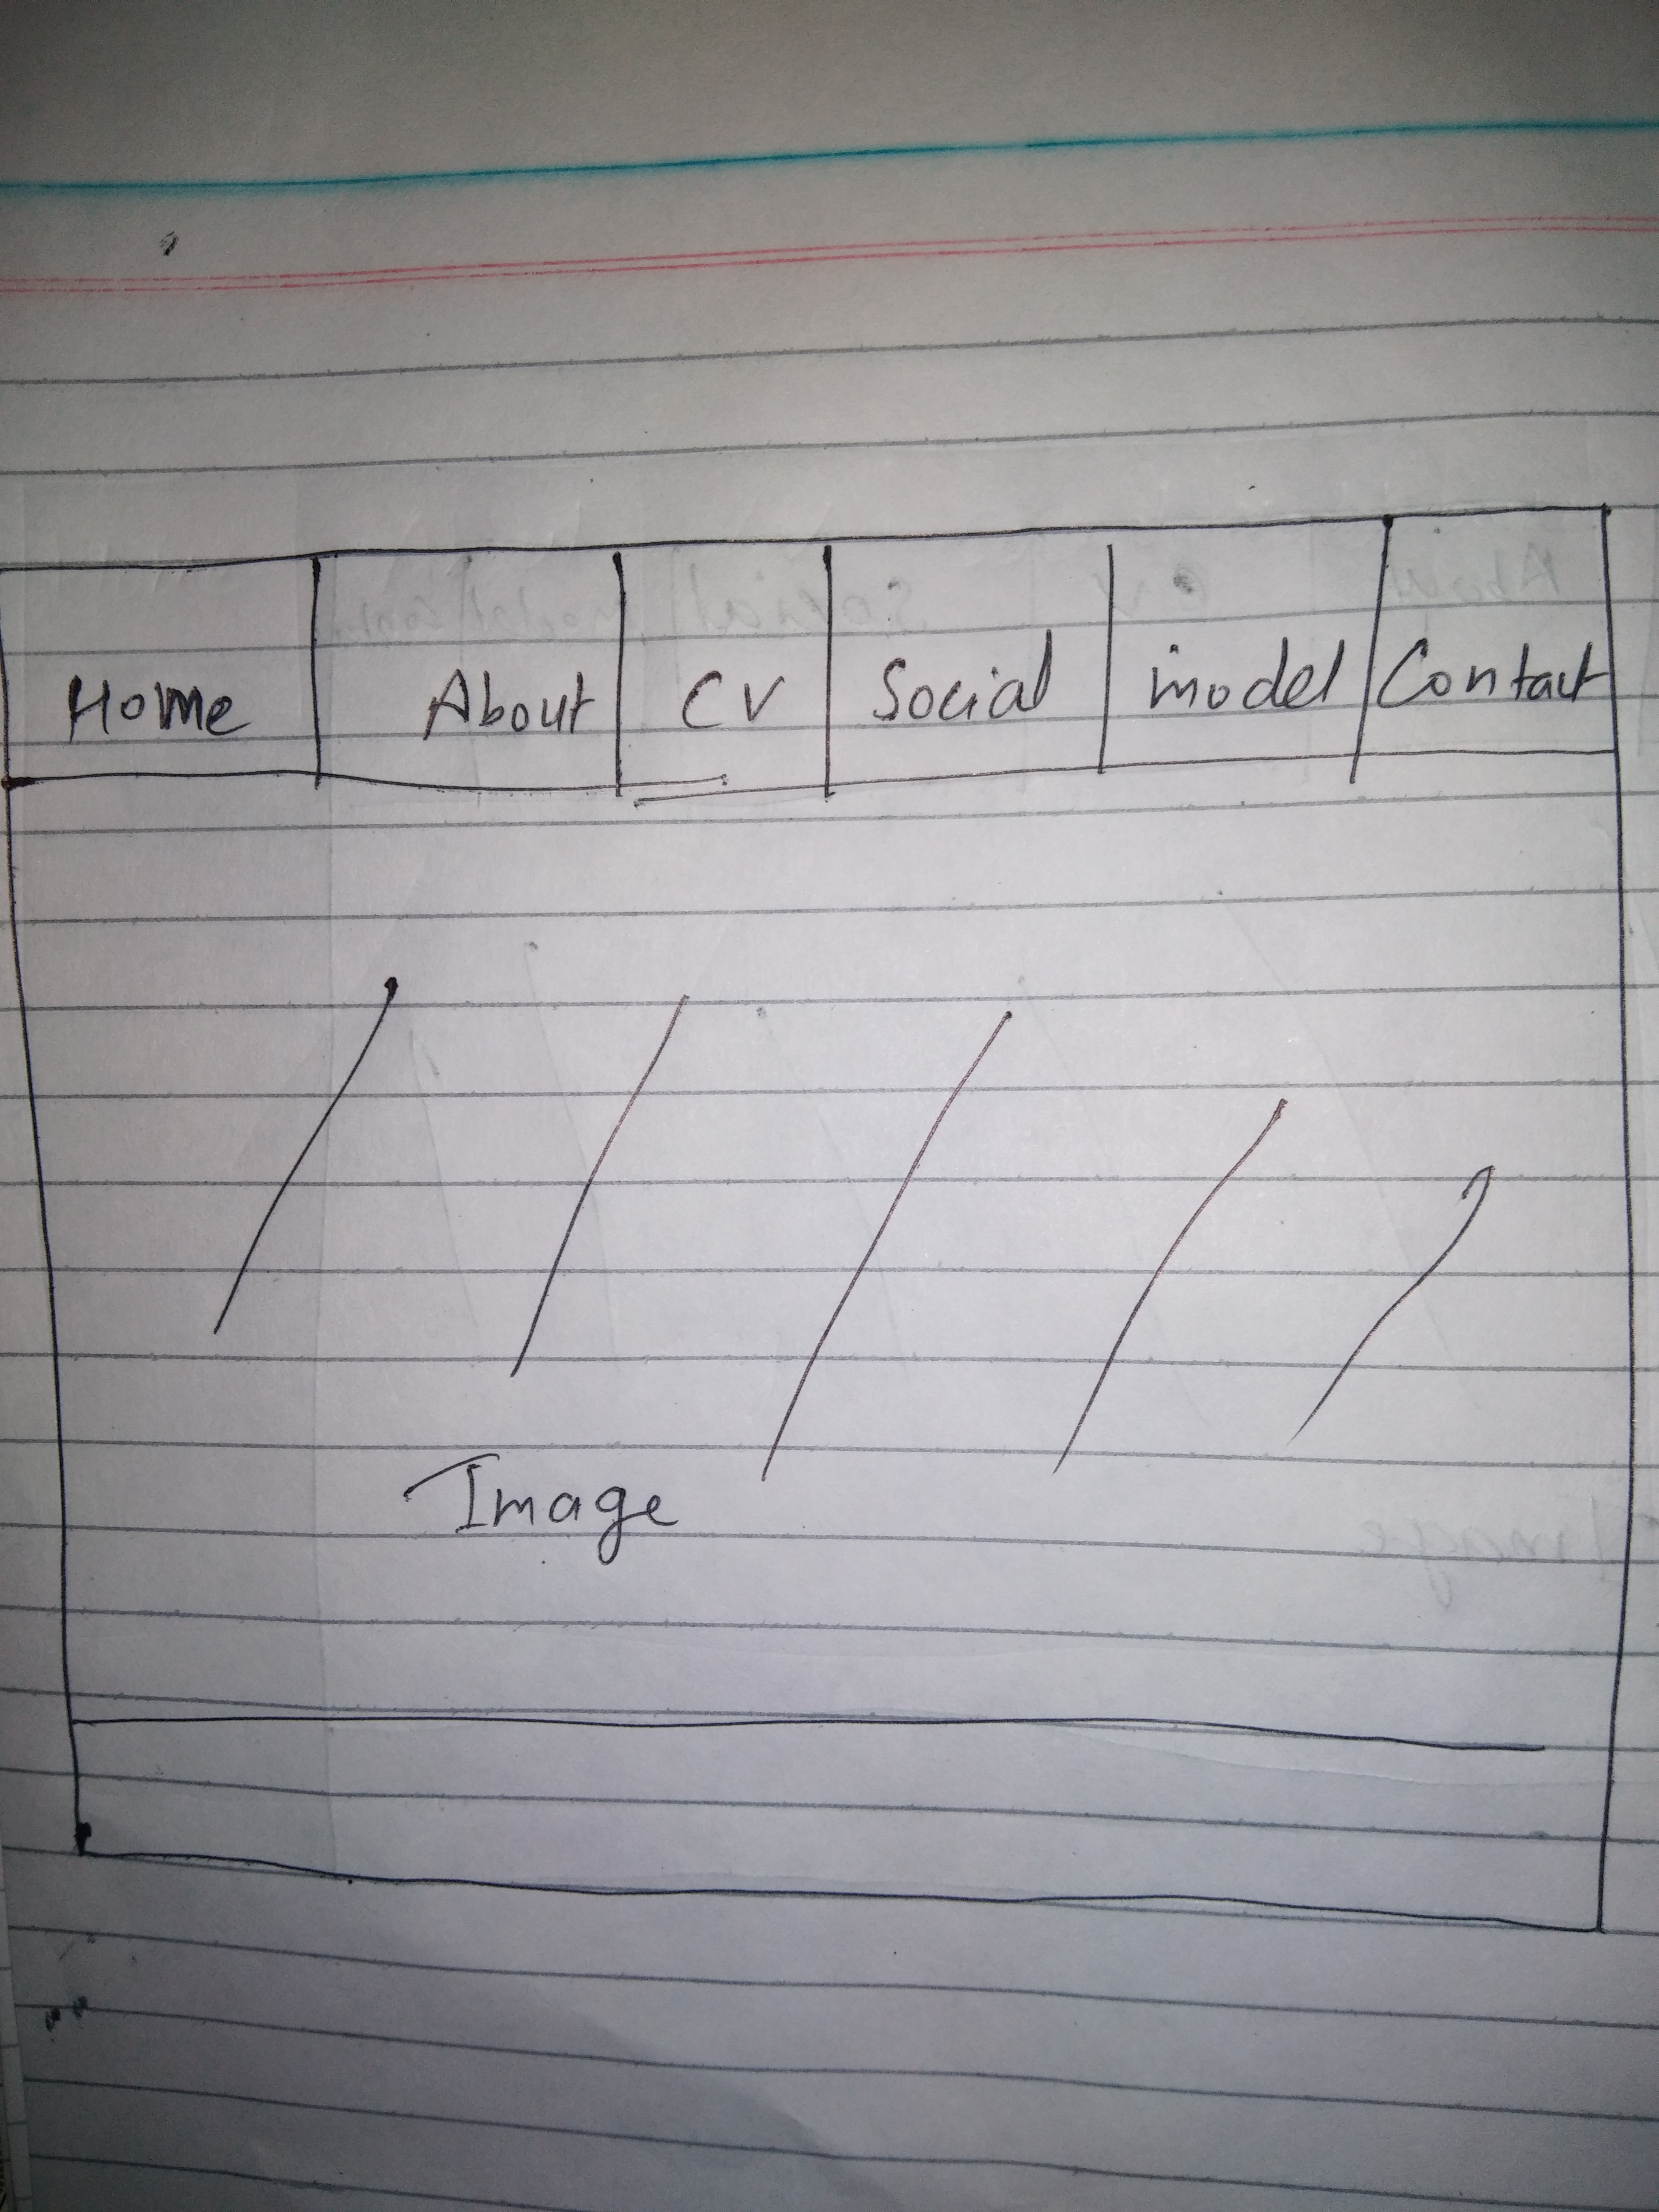 Home About CV Social model Contact
Image